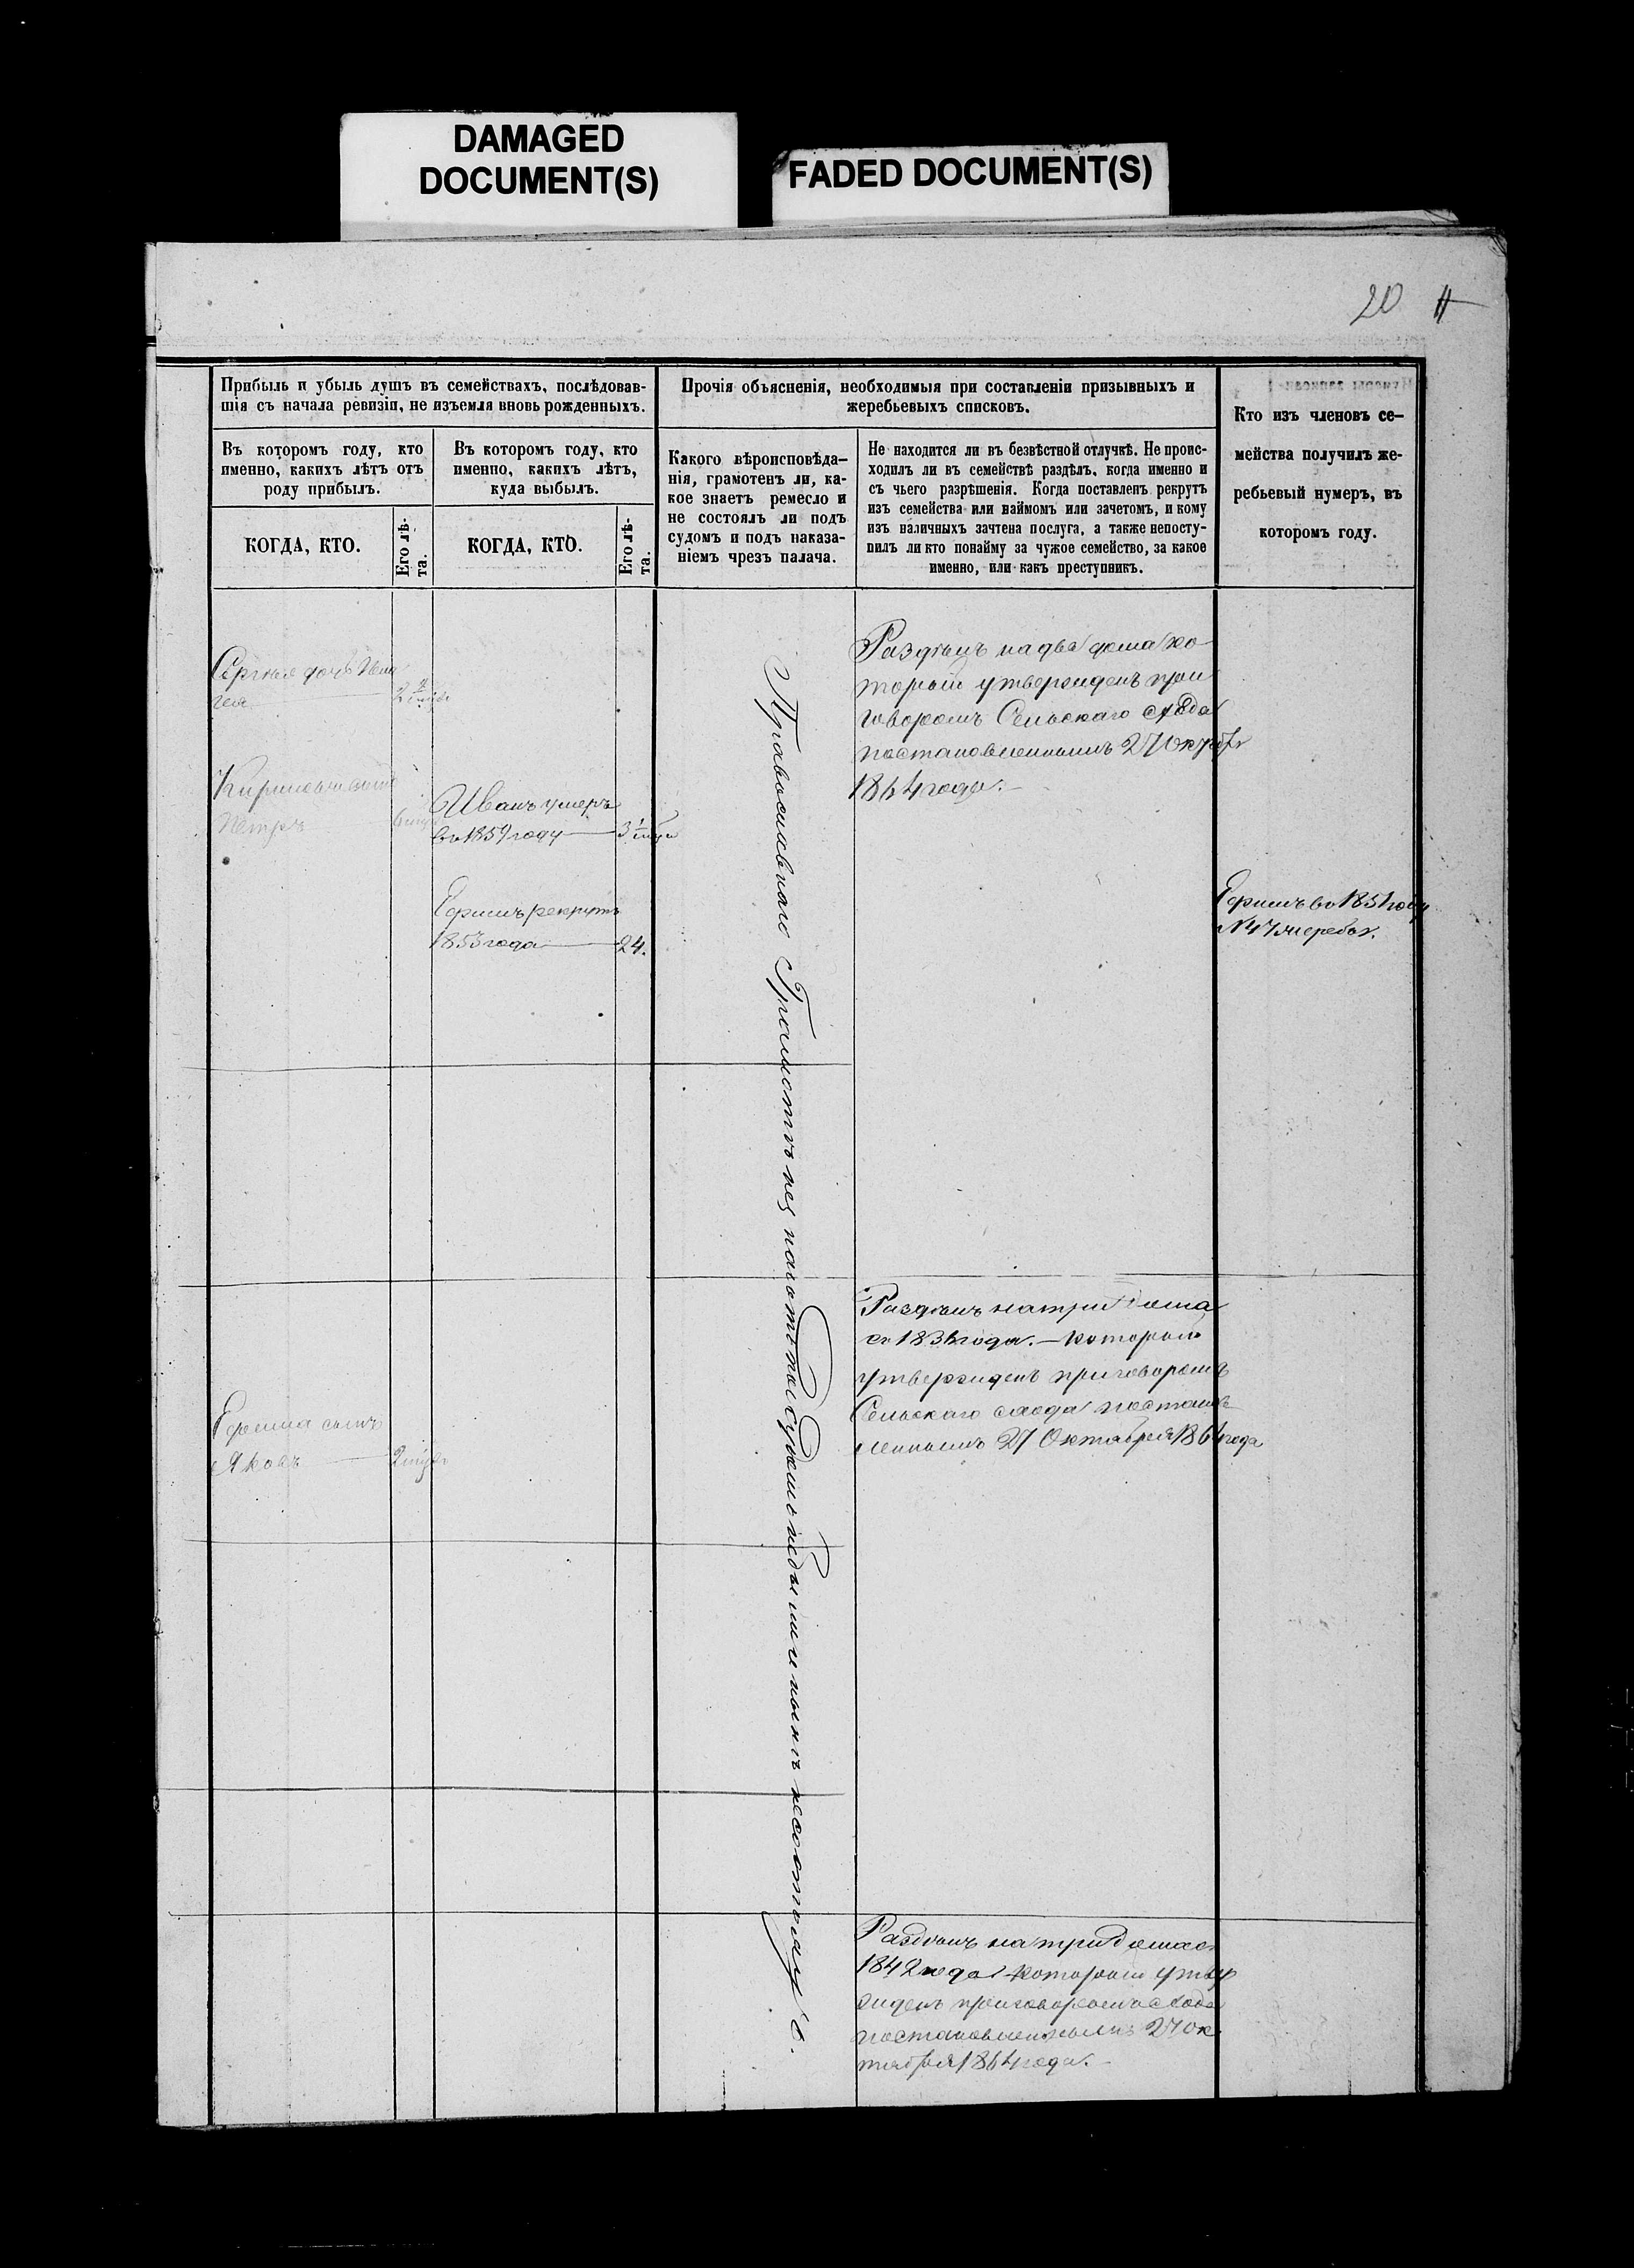 DAMAGED
DOCUMENT(S)
FADED DOCUMENT(S)
20
Прибыль и убыль душъ въ семействахъ, послѣдовав-
шія съ начала ревизіи, не изъемля вновь рожденныхъ.
Въ которомъ году, кто
именно, какихъ лѣтъ отъ
роду прибылъ.
КОГДА, КТО.
Его лѣ-
та.
Въ котоpомъ году, кто
именно, какихъ лѣтъ,
куда выбылъ.
КОГДА, КТО.
Его лѣ-
та.
Прочія объясненія, необходимыя при составленіи призывныхъ и
жеребьевыхъ списковъ.
Какого вѣроисповѣда-
нія, грамотенъ ли, ка-
кое знаетъ ремесло и
не состоялъ ли подъ
судомъ и подъ наказа-
ніемъ чрезъ палача.
Не находится ли въ безвѣстной отлучкѣ. Не проис-
ходилъ ли въ семействѣ раздѣлъ, когда именно и
съ чьего разрѣшенія. Когда поставленъ рекрутъ
изъ семейства или наймомъ или зачетомъ, и кому
изъ наличныхъ зачтена послуга, а также непосту-
пилъ ли кто понайму за чужое семейство, за какое
именно, или какъ преступникъ.
Кто изъ членовъ се-
мейства получилъ же-
ребьевый нумеръ, въ
которомъ году.
Сергѣя дочь
Петръ
Иванъ умеръ
въ 1859 году 3
Ефимъ рекрутъ
1853 года 24.
Ефима сынъ
Яковъ
Православнаго Грамотѣ не Судомъ не были и нынѣ несостоятъ.
Раздѣлъ на два дома ко-
торый утвержденъ при
говоромъ Сельскаго схода
постановленнымъ 27 Октября
1864 года.
Ефимъ въ 1851 году
№ 47 жеребья.
Раздѣлъ на три дома
съ 1836 года. - который
утвержденъ приговоромъ
Сельскаго схода постанов
леннымъ 27 Октября 1864 года
Раздѣлъ на три дома съ
1842 года который утвер
жденъ приговоромъ схода
постановленнымъ 27 Ок
тября 1864 года.